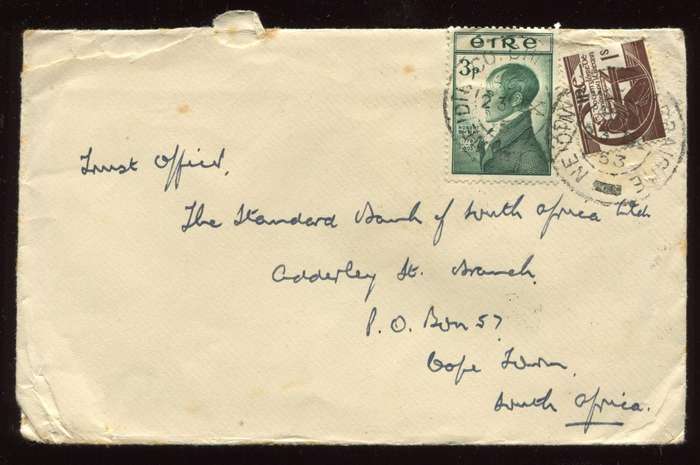 ÉIRE
3p
1s
53
Trust Officer,
The Standard Bank of South Africa Ltd.
Adderley St. Branch.
P.O. Box 57
Cape Town,
South Africa.